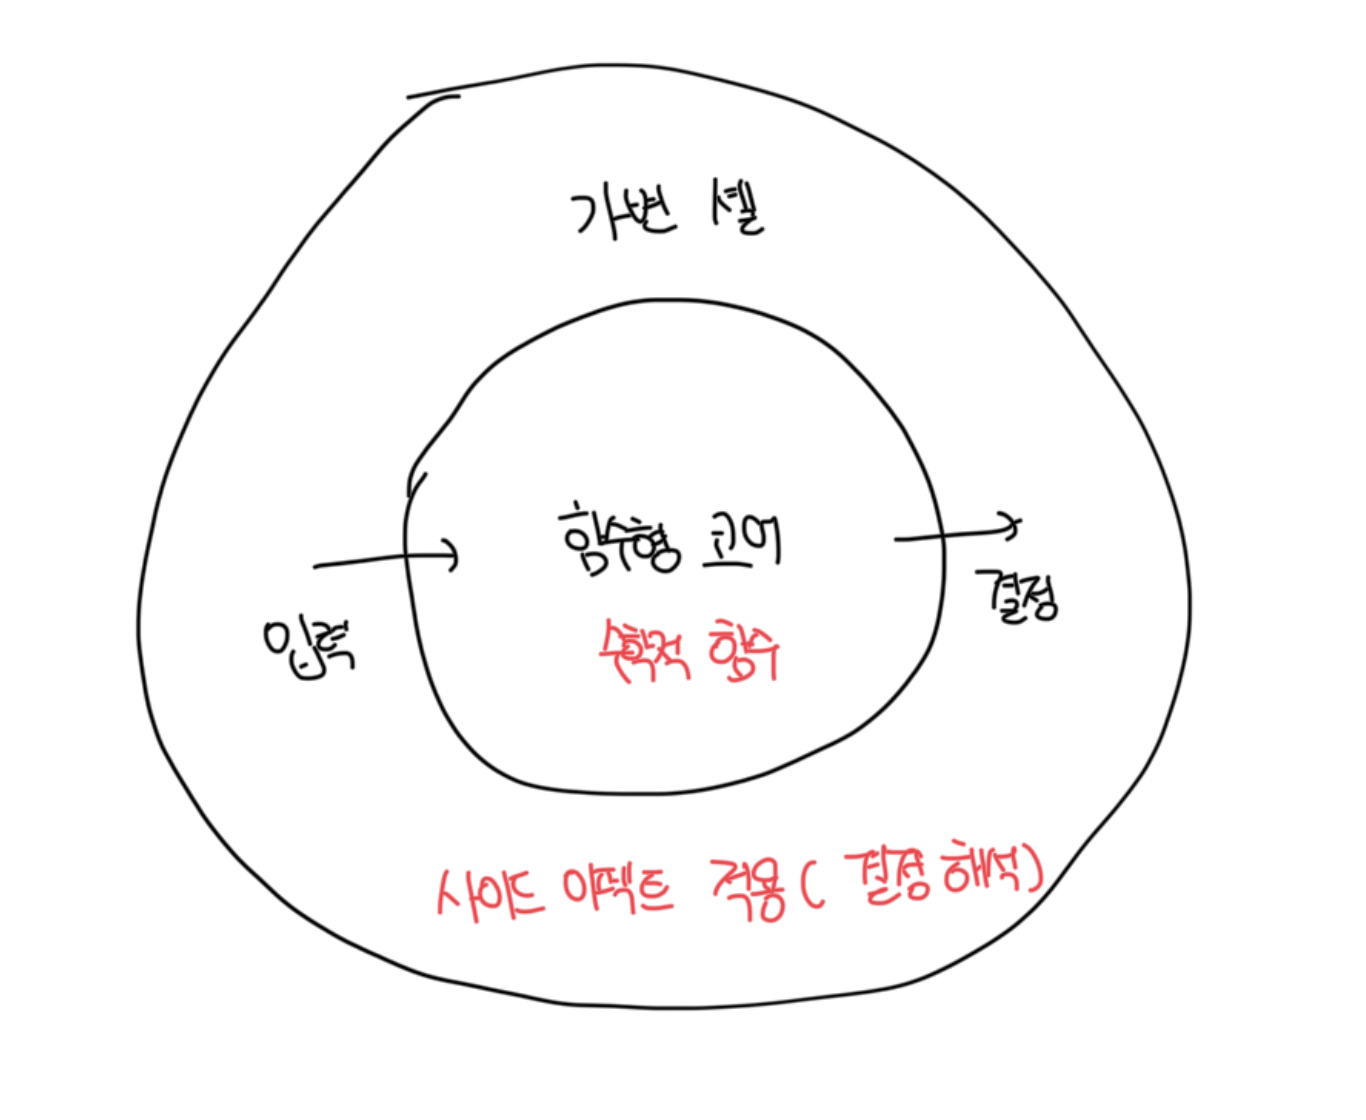 가변 셸
함수형 코어
수학적 함수
입력
결정
사이드 이펙트 적용 ( 결정 해석)